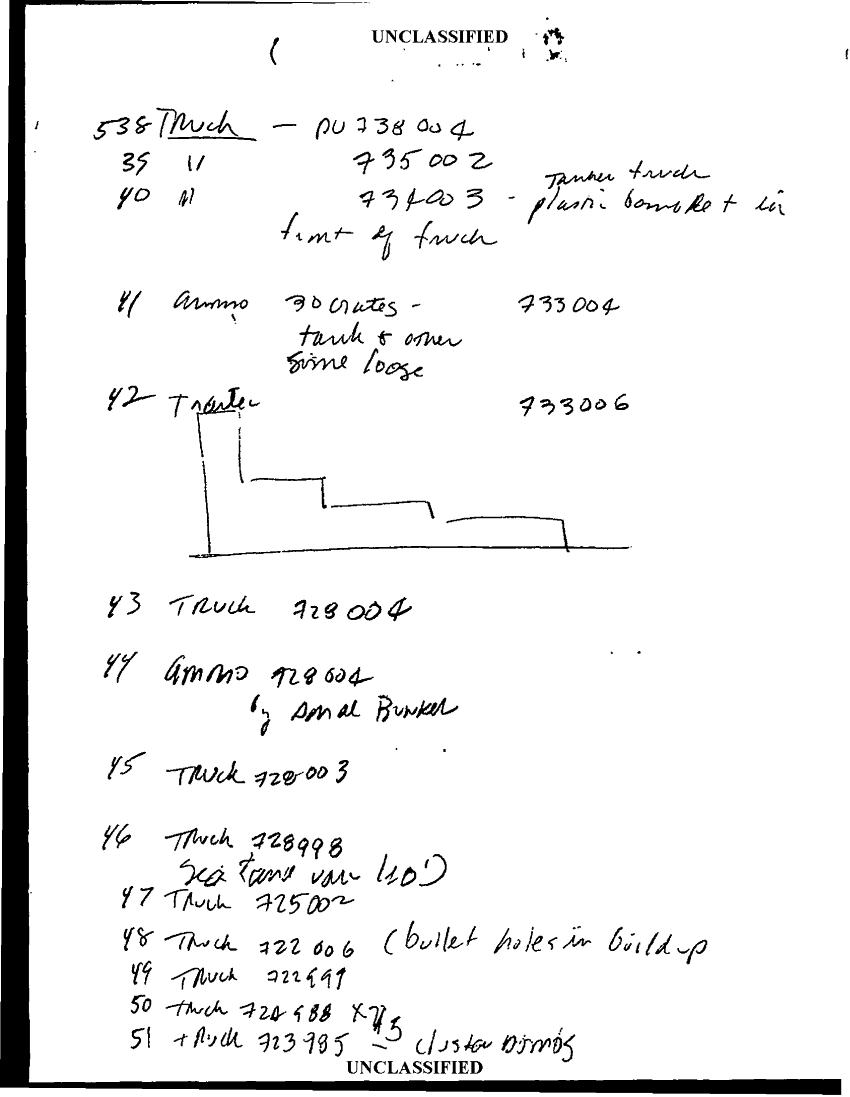 UNCLASSIFIED
538 Truck — PU 738 004
39 " 735 002
40 " 734003 - Tanker truck
plastic in
front of truck
41 Ammo 30 crates - 733004
tank & other
some loose
42 733006
43 Truck 728 004
44 Ammo 728 004
by small Bunker
45 Truck 728 003
46 Truck 728998
Sea van (40')
47 Truck 725002
48 Truck 722 006 (bullet holes in build up
49 Truck
50 truck
51 truck 723985 — cluster bombs
UNCLASSIFIED